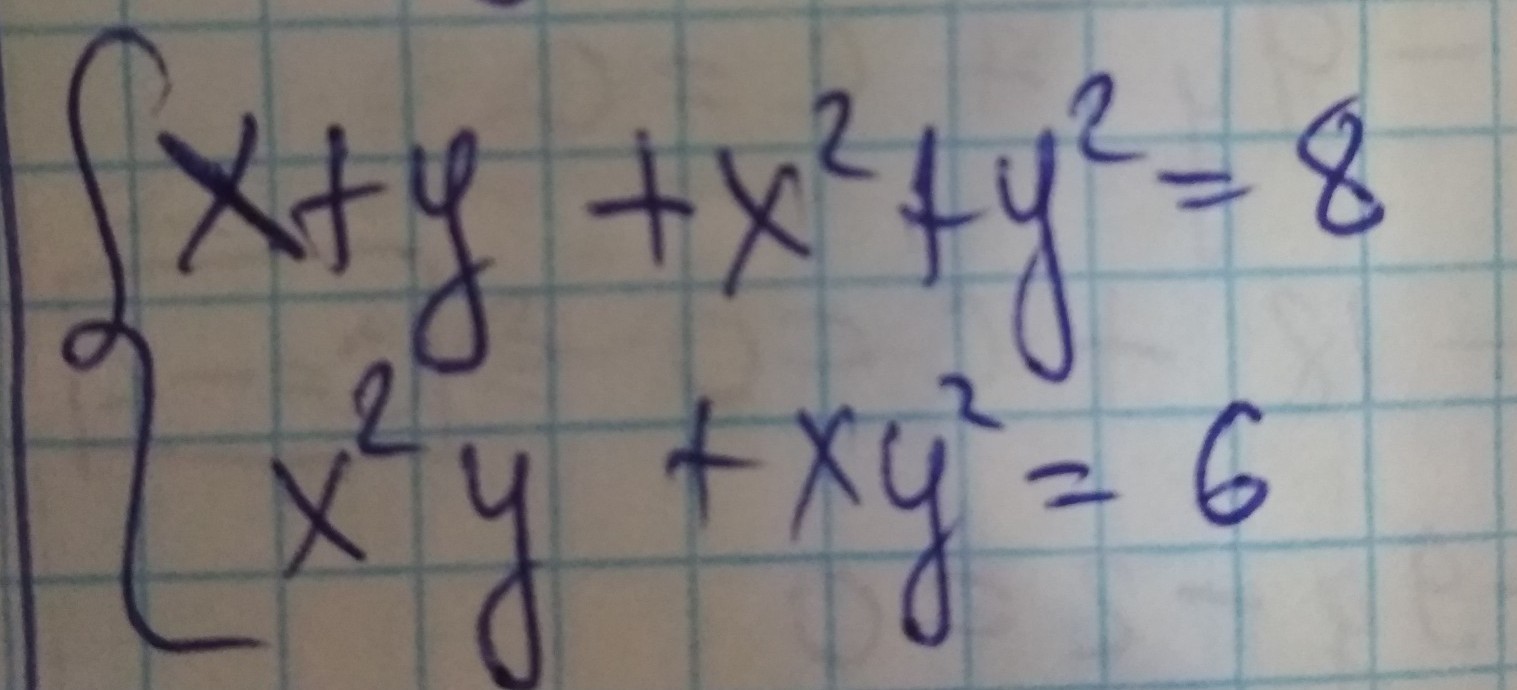 x+y +x²+y²=8
x²y +xy²=6